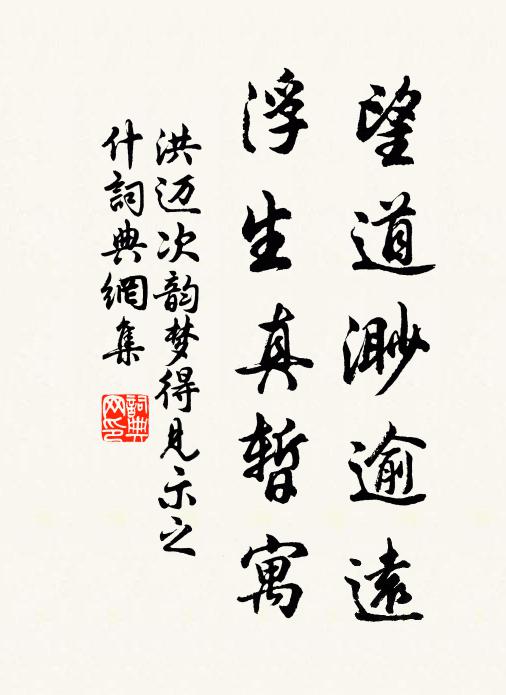 望道渺逾遠
浮生真暫寓
洪迈次韵梦得見示之
什詞典網集
詞典网印